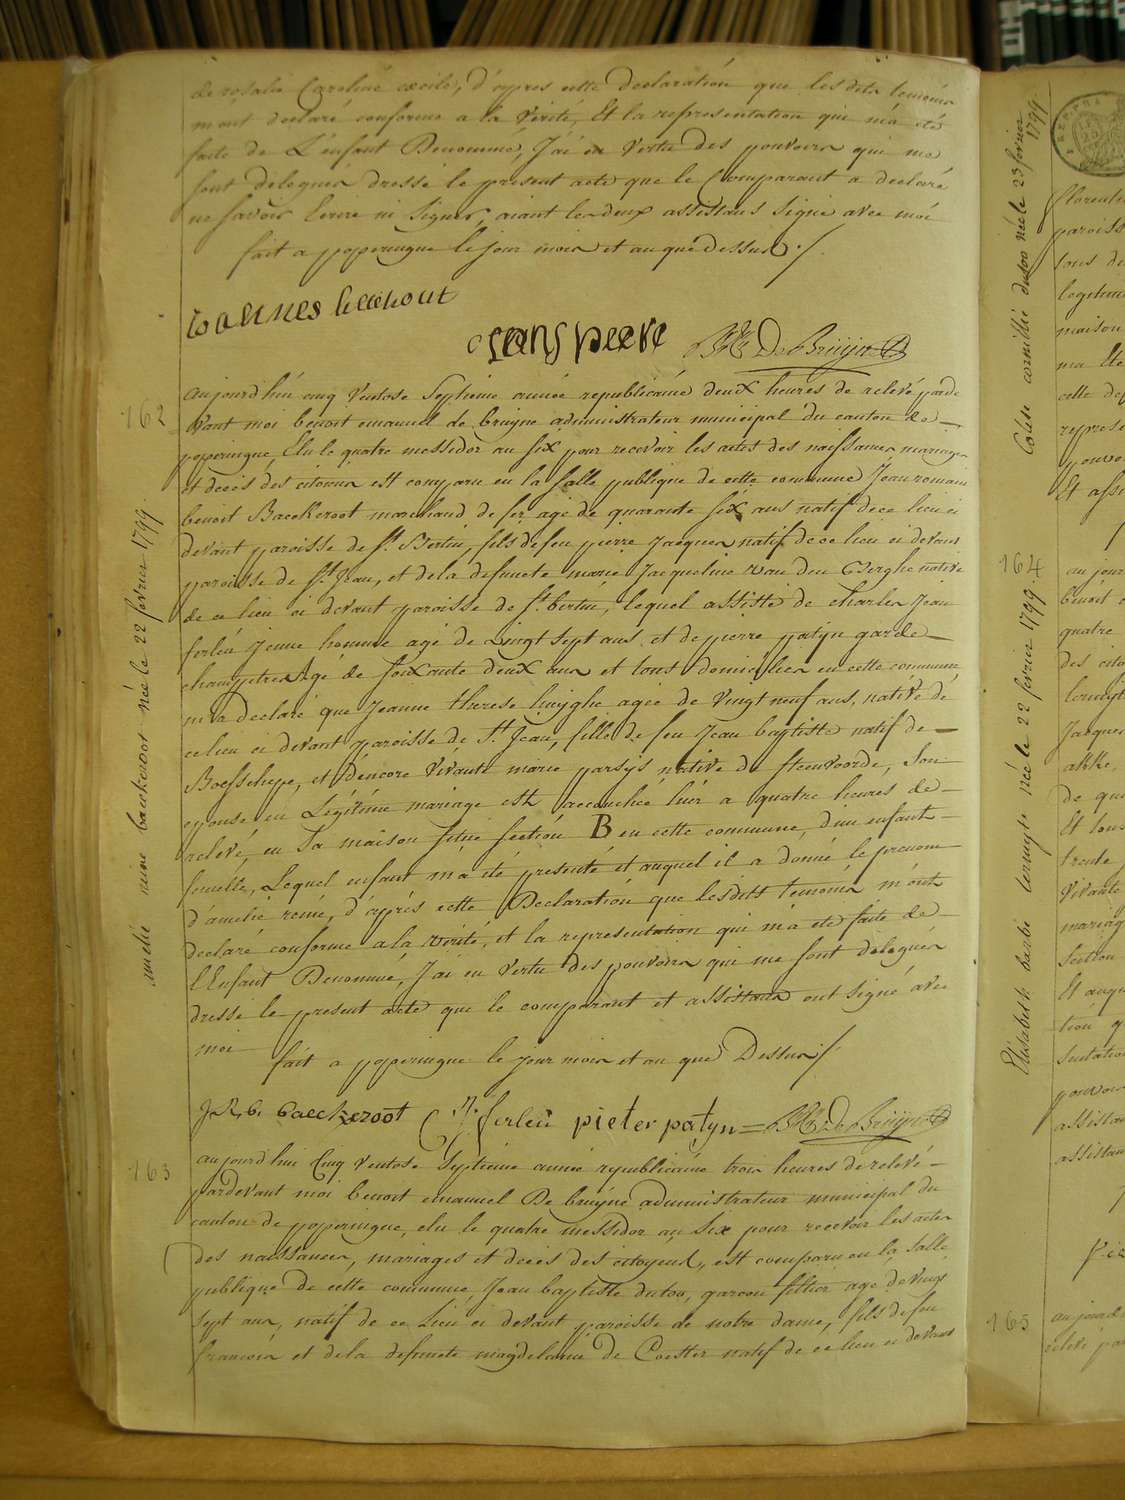 de rosalie Caroline cecile, d'apres cette declaration que les dits temoins
m'ont declaré conforme a la verité, Et la representation qui m'a été
faite de L'enfant Denommé, J'ai en vertu des pouvoirs que me
sont deleguer dressé le present acte que le Comparant a declaré
ne savoir Ecrire ni signer, aiant les deux assistans signé avec moi
fait a poperingue le jour mois et an que Dessus ./
ioannes
BE De Bruijne
162
aujourd'hui cinq ventose septieme année republicaine deux heures de relevé parde
vant moi benoit emanuel de bruijne administrateur municipal du canton de
poperingue, Elu le quatre messidor an six pour recevoir les actes des naissances mariages
et decès des citoiens est comparu en la salle publique de cette commune Jean romain
benoit Baeckeroot marchand de fer agé de quarante six ans natif de ce lieu ci
devant paroisse de St. Bertin, fils de feu pierre Jacques natif de ce lieu ci devant
paroisse de St. Jean, et de la defuncte marie Jacqueline van den Berghe native
de ce lieu ci devant paroisse de St. bertin, lequel assisté de charles Jean
ferleu jeune homme agé de vingt sept ans et de pierre patijn garde
champetre Agé de soixante deux ans et tous domiciliés en cette commune
m'a declaré que Jeanne therese huijghe agée de vingt neuf ans, native de
ce lieu ci devant paroisse de St. Jean, fille de feu Jean baptiste natif de
Boesschepe, et d'encore vivante marie parsijs native de steenvoorde, son
epouse en Légitime mariage est accouchée hier a quatre heures de
relevé, en sa maison sitûe section B en cette commune, d'un enfant
femelle, Lequel enfant m'a été presenté et auquel il a donné le prenom
d'amelie reine, d'après cette Declaration que lesdits temoins m'ont
declaré conforme a la verité, et la representation qui m'a eté faite de
l'Enfant Denommé, J'ai en vertu des pouvoirs qui me sont delegués
dressé le present acte que le comparant et assistans ont signé avec
moi fait a poperingue le jour mois et an que Dessus /
amelie reine baeckeroot née le 22 février 1799.
J.R.b. baeckeroot C. J. ferleu pieter patyn = BE De Bruijne
163
aujourd'hui Cinq ventose septieme année republicaine trois heures de relevé
pardevant moi benoit emanuel De bruijne administrateur municipal du
canton de poperingue, elu le quatre messidor an six pour recevoir les actes
des naissances, mariages et decès des citoyens, est comparu en la salle
publique de cette commune Jean baptiste dutoo, garcon agé de vingt
sept ans, natif de ce Lieu ci devant paroisse de notre dame, fils de feu
francois et de la defuncte magdelaine De Coester natif de ce lieu ci devant
née le 23 février 1799.
164
Elisabeth barbe née le 22 fevrier 1799.
paroiss
sous de
legitim
maison
165